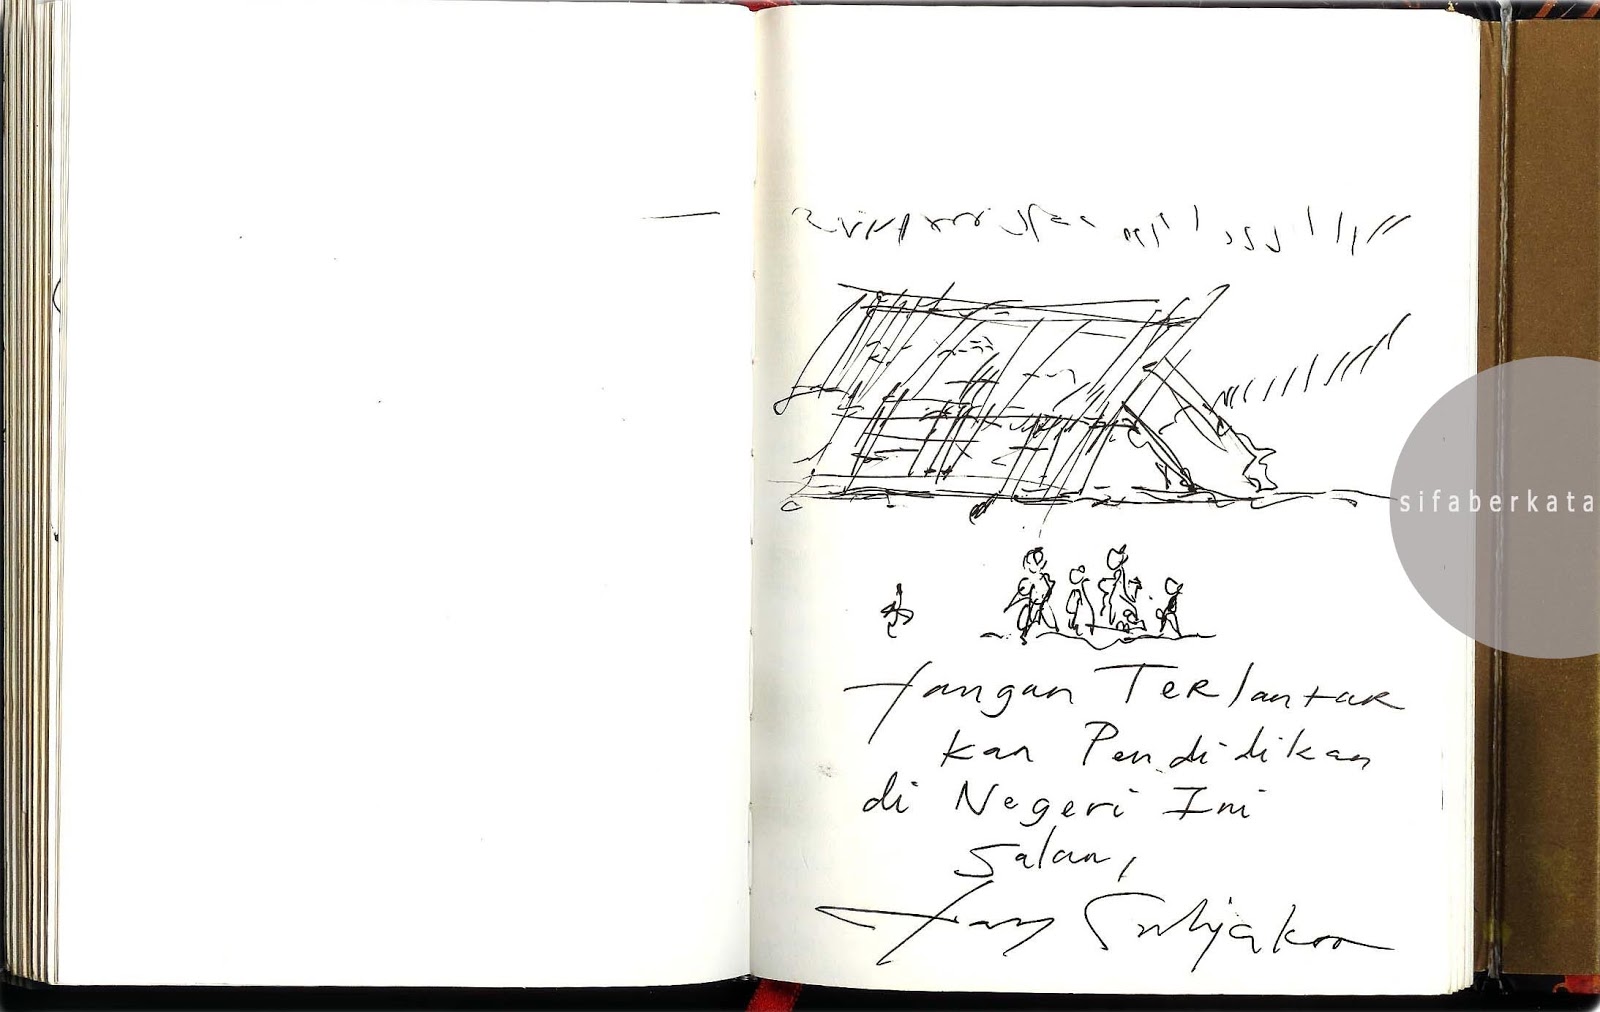 Jangan Terlantar
kan Pendidikan
di Negeri Ini
Salam,
Jay Subyakto
sifaberkata